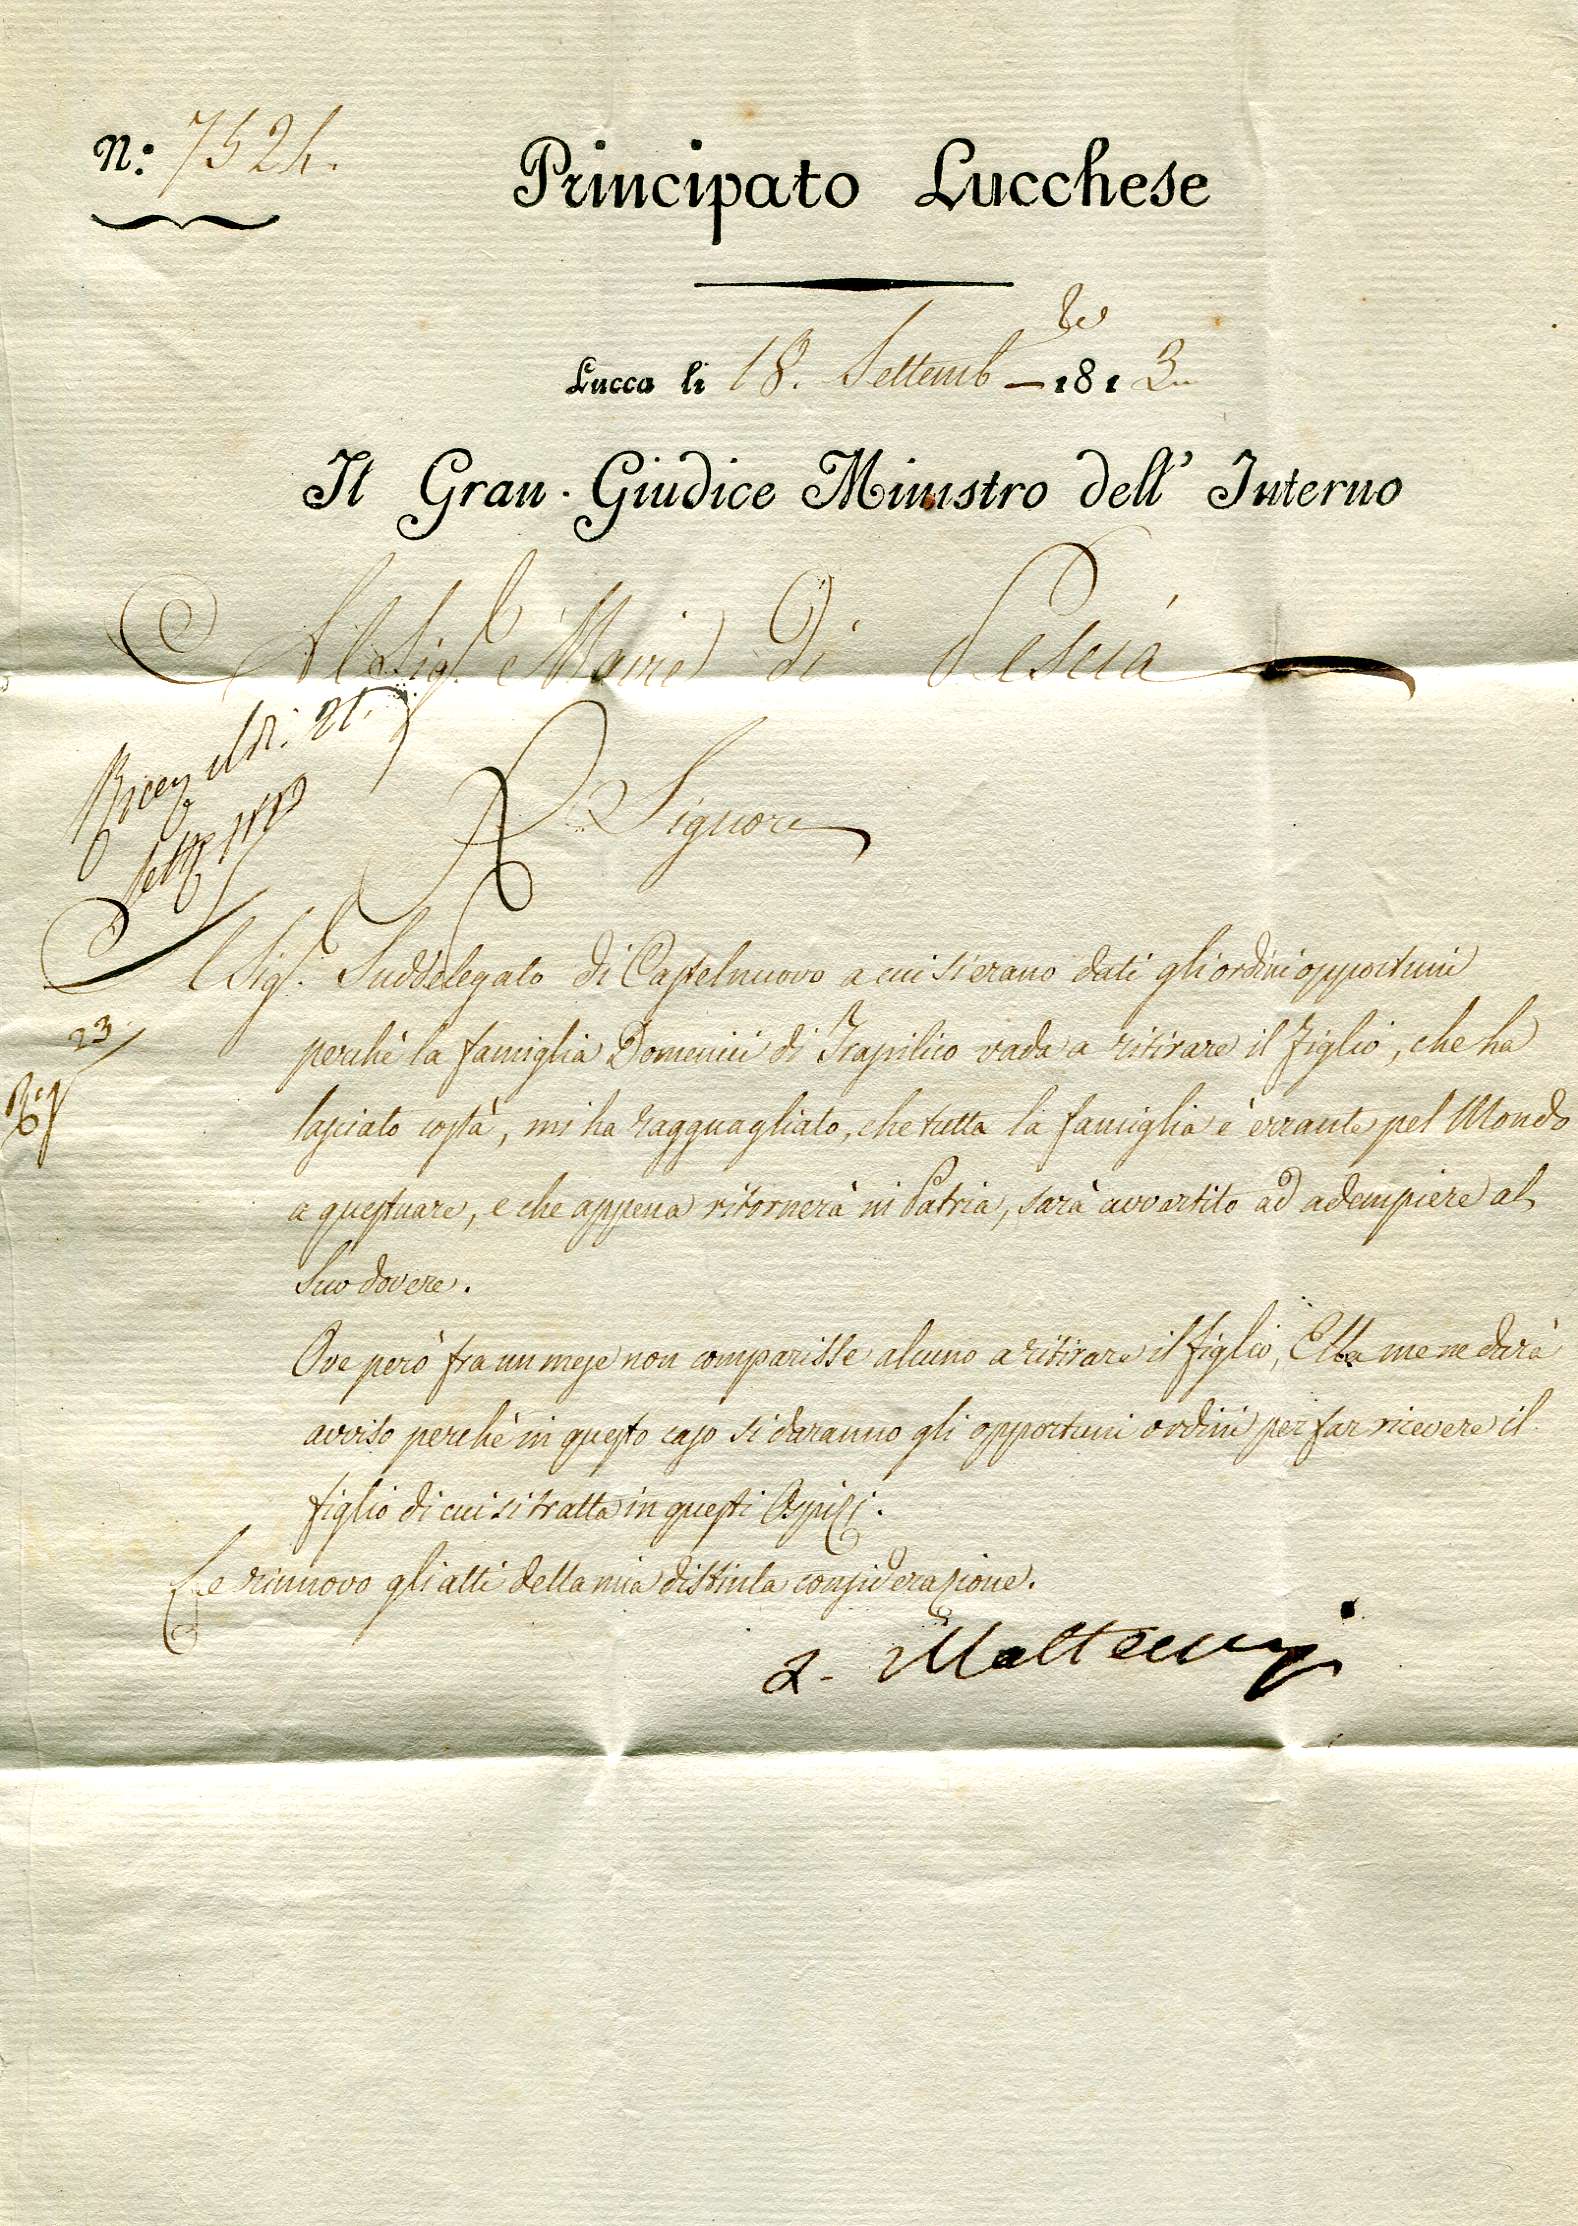 N: 7524.
Principato Lucchese
Lucca li 18. Settemb.re 1813
Il Gran-Giudice Ministro dell' Interno
Al Sig.e Maire di Pescia
Signore
Il Sig.e Suddelegato di Castelnuovo a cui si erano dati gli ordini opportuni
perchè la famiglia Domenici di Trapilico vada a ritirare il figlio, che ha
lasciato costà, mi ha ragguagliato, che tutta la famiglia è errante pel Mondo
a questuare, e che appena ritornerà in Patria, sarà avvertito ad adempiere al
suo dovere.
Ove però fra un mese non comparisse alcuno a ritirare il figlio, Ella me ne darà
avviso perchè in questo caso si daranno gli opportuni ordini per far ricevere il
figlio di cui si tratta in questi Ospizj.
Le rinnovo gli atti della mia distinta considerazione.
L. Matteucci
23